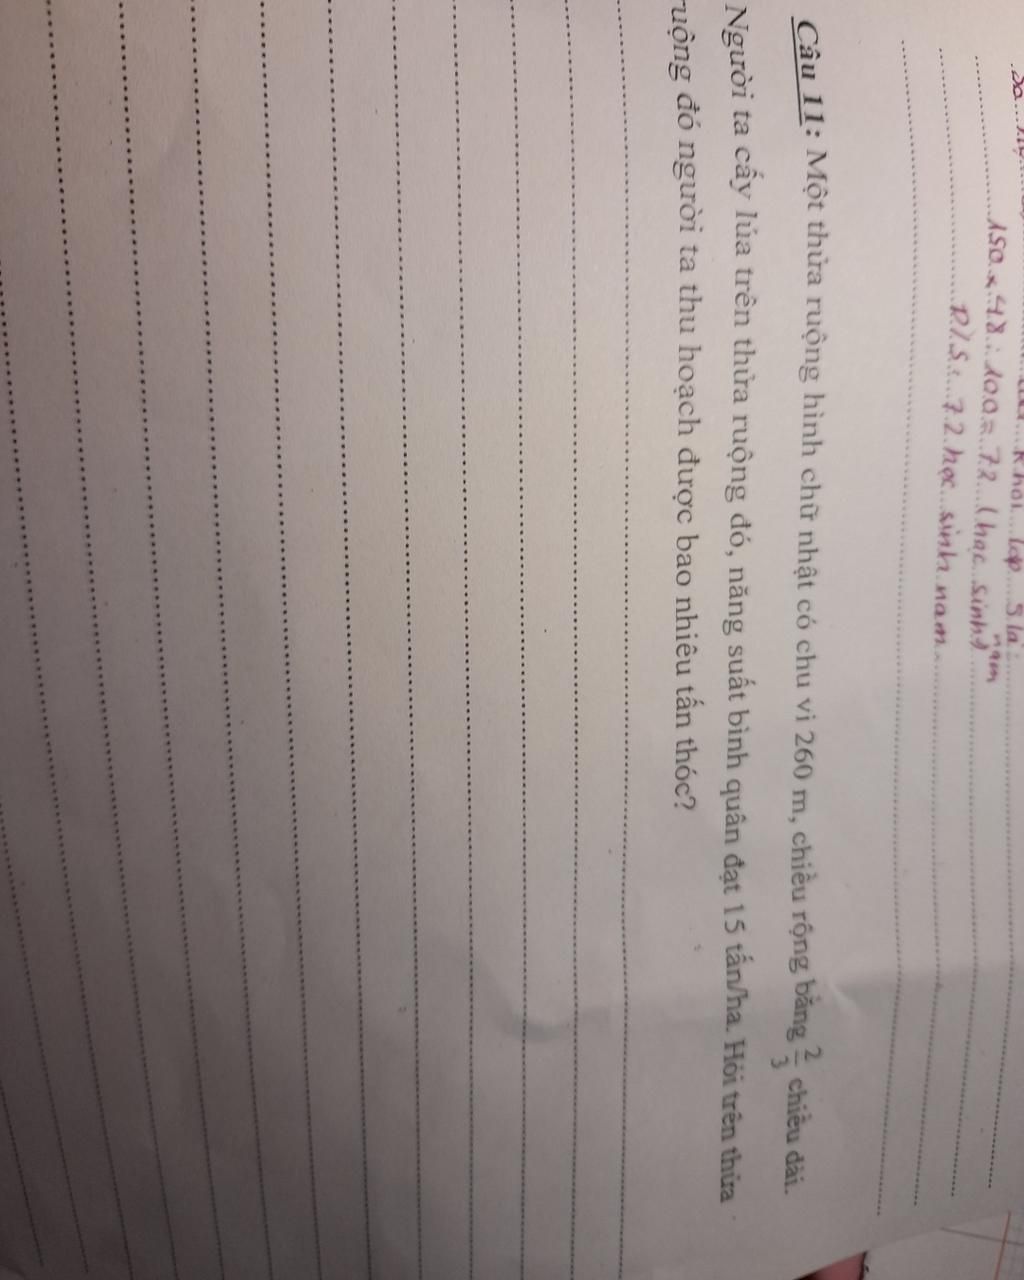 150 x 48 : 100 = 72 (học sinh nam)
Đ/S : 72 học sinh nam.
Câu 11: Một thửa ruộng hình chữ nhật có chu vi 260 m, chiều rộng bằng 2/3 chiều dài.
Người ta cấy lúa trên thửa ruộng đó, năng suất bình quân đạt 15 tấn/ha. Hỏi trên thửa
ruộng đó người ta thu hoạch được bao nhiêu tấn thóc?